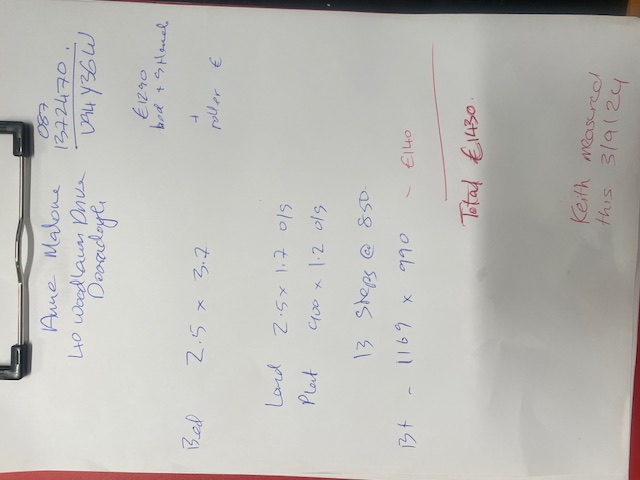 Anne Malone
087
1372470.
40 Woodlawn Drive
V94 Y36W
Dooradoyle
€1290
bed + S+land
Bed 2.5 x 3.7
+
roller €
Land 2.5 x 1.7 o/s
Plat 900 x 1.2 o/s
13 Steps @ 850.
- 1169 x 990 - €140
Total €1430.
Keith measured
this 3/9/24